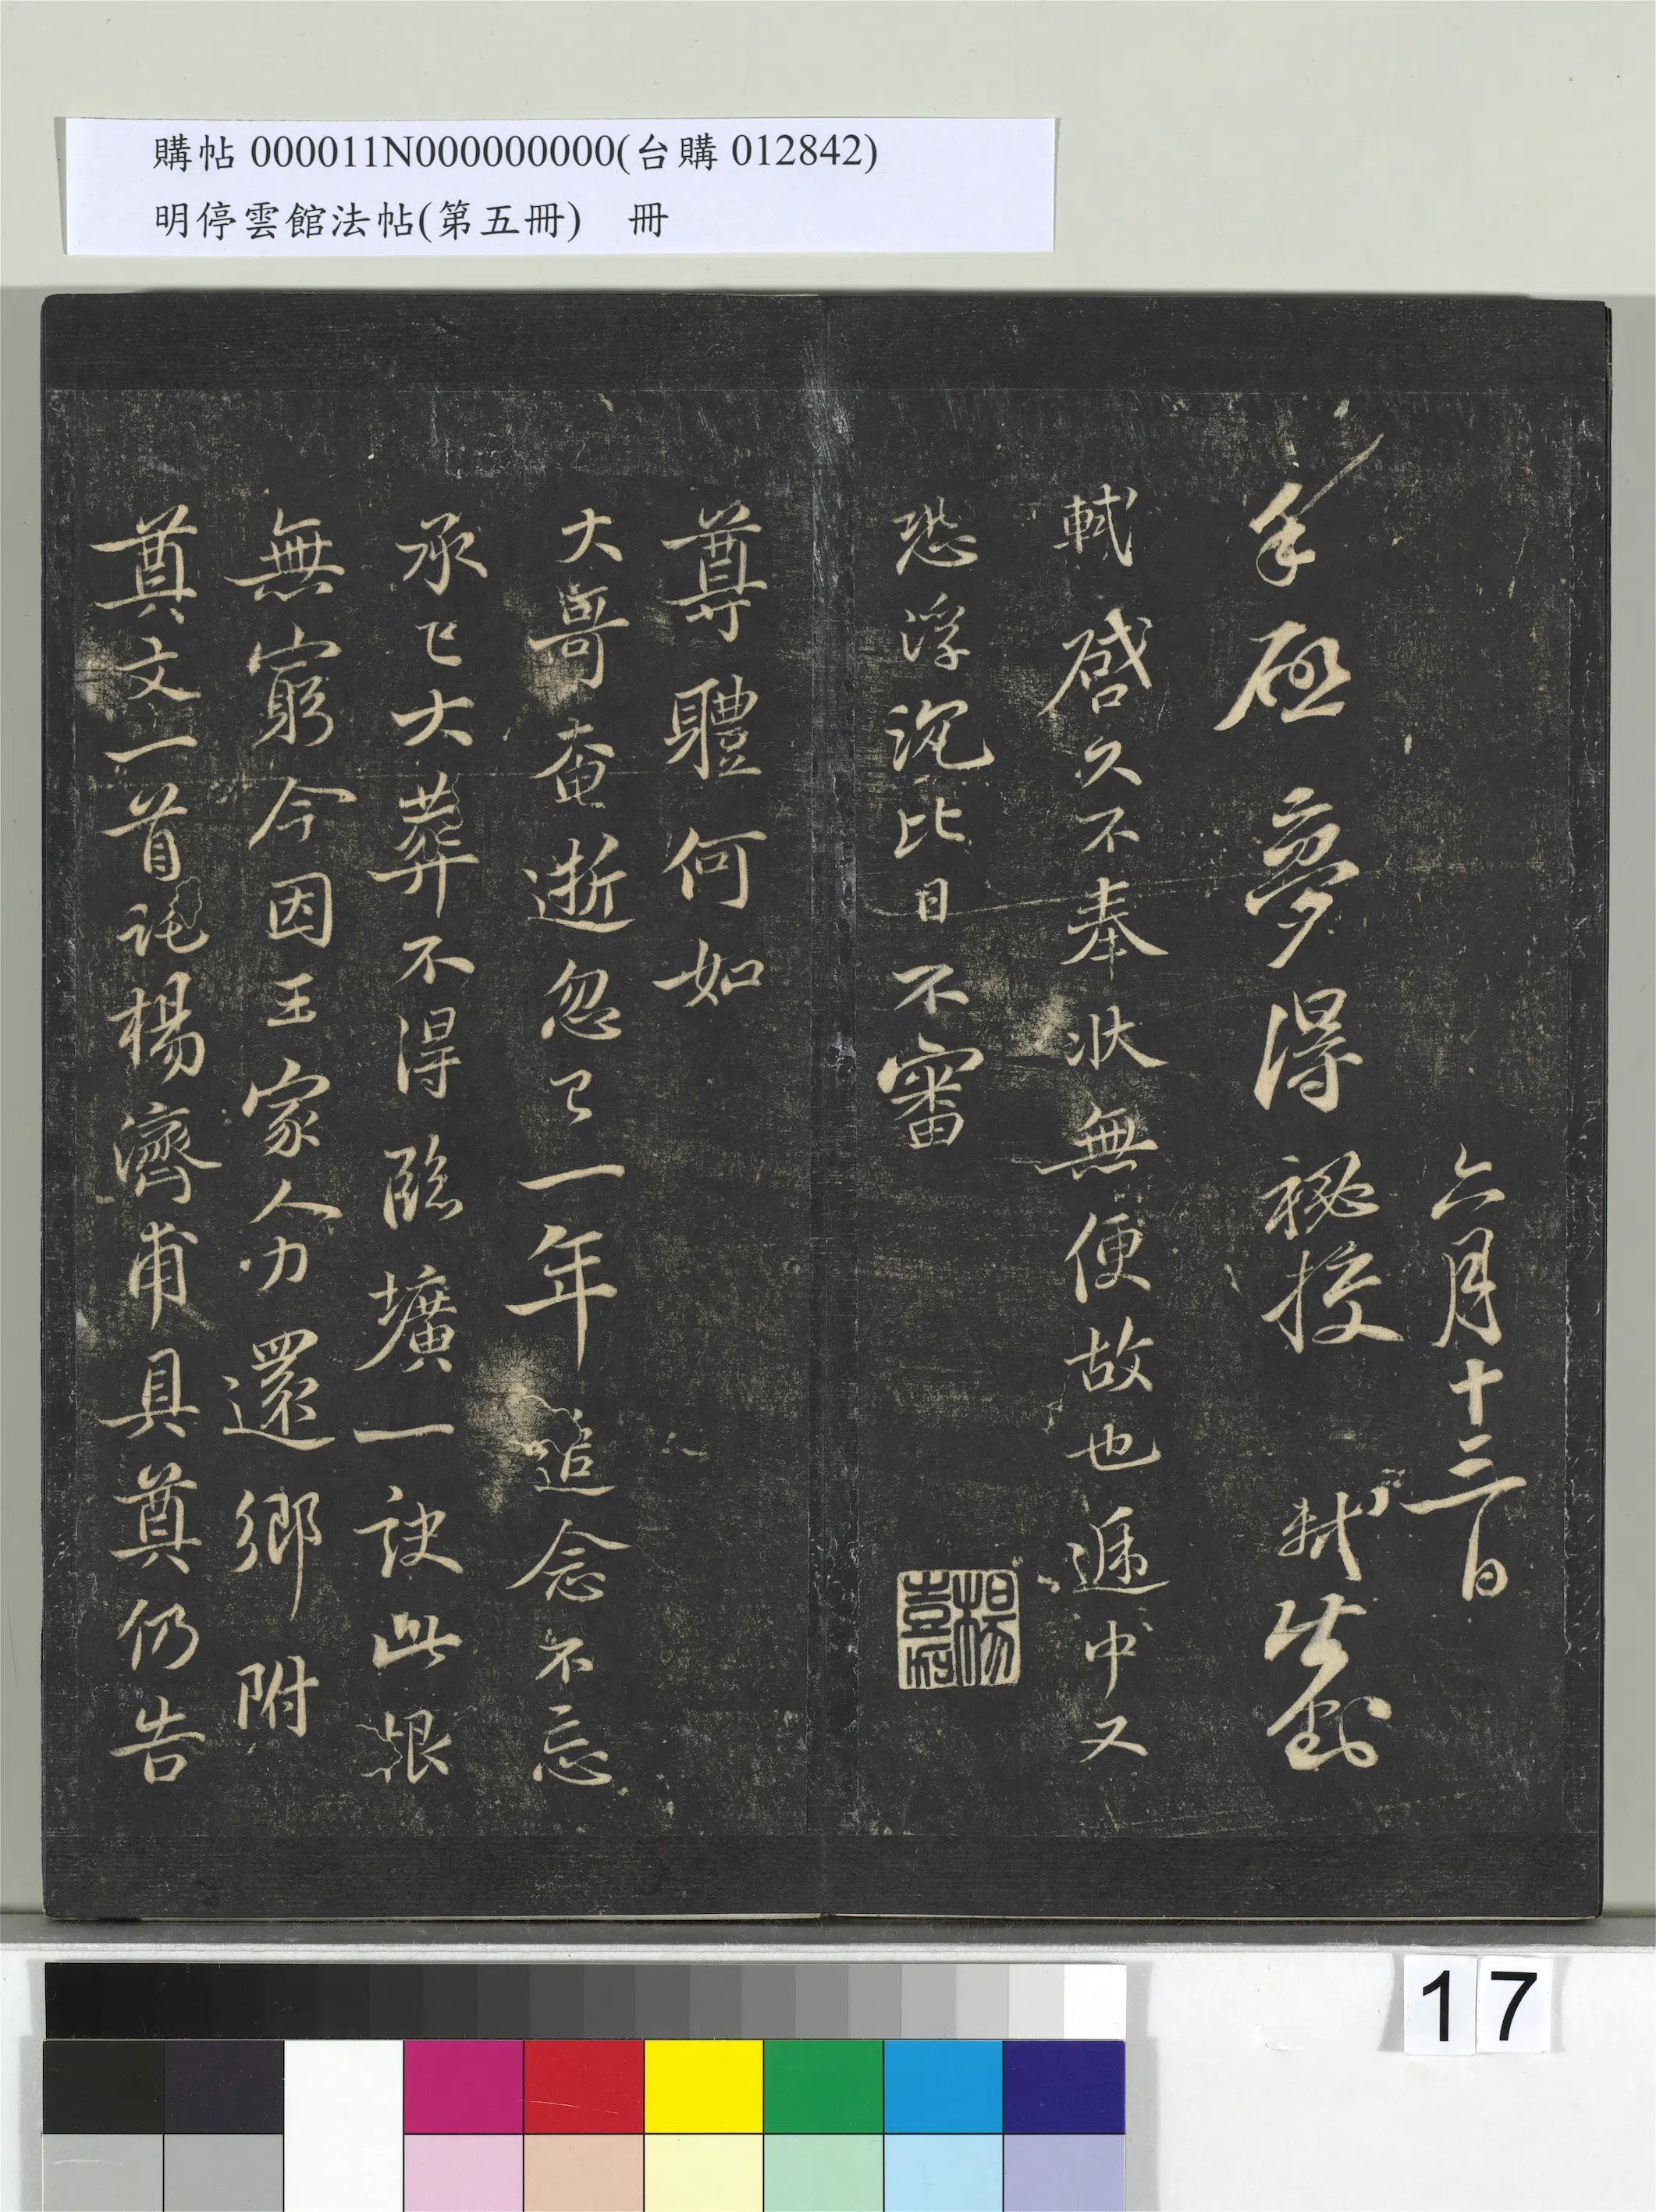 購帖 000011N000000000(台購 012842)
明停雲館法帖(第五冊) 冊
六月十三日
手啟 夢得秘校 軾
軾啓久不奉狀無便故也遞中又
恐浮沉比日不審
尊體何如
大哥奄逝忽已一年追念不忘
承已大葬不得臨壙一訣此恨
無窮今因王家人力還鄉附
奠文一首託楊濟甫具奠仍告
17